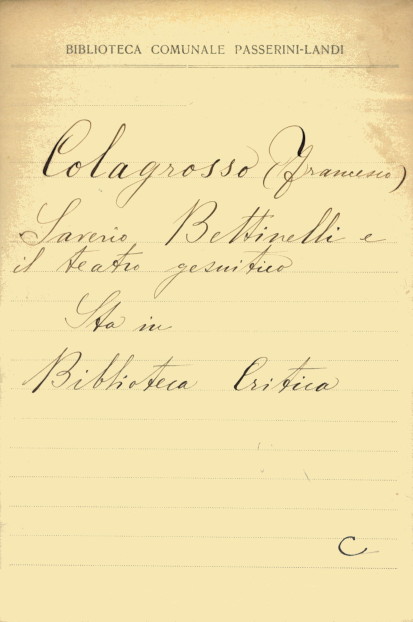 BIBLIOTECA COMUNALE PASSERINI-LANDI
Colagrosso (Francesco)
Saverio Bettinelli e
il teatro gesuitico
Sta in
Biblioteca Critica
C